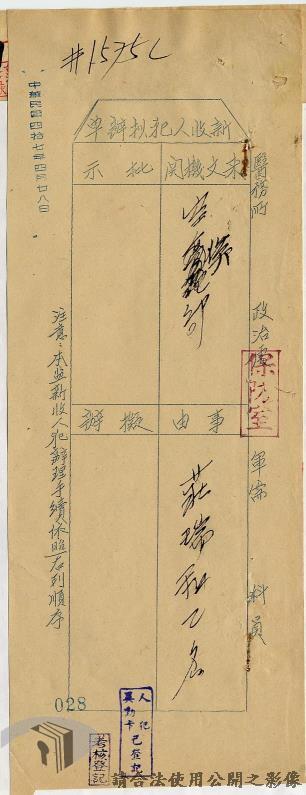 #1575乙
新收人犯擬辦單
來文機関
批示
事由
擬辦
莊瑞和乙名
醫務所 政治處 軍需 科員
保防室
注意：本監新收人犯辦理手續依照右列順序
中華民國四拾七年四月廿八日
028
人犯
異動卡
已登記
考核登記
請合法使用公開之影像